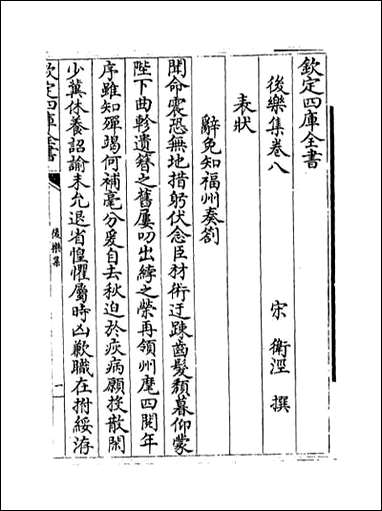 欽定四庫全書
後樂集卷八
宋 衛涇 撰
表狀
辭免知福州奏劄
聞命震恐無地措躬伏念臣材術迂疎齒髮頽暮仰蒙
陛下曲軫遺簪之舊屢叨出綍之榮再領州麾四閱年
序雖知殫竭何補毫分爰自去秋迫於疾病願投散閒
少冀休養詔諭未允退省惶懼屬時凶歉職在拊綏洊
欽定四庫全書
後樂集
一